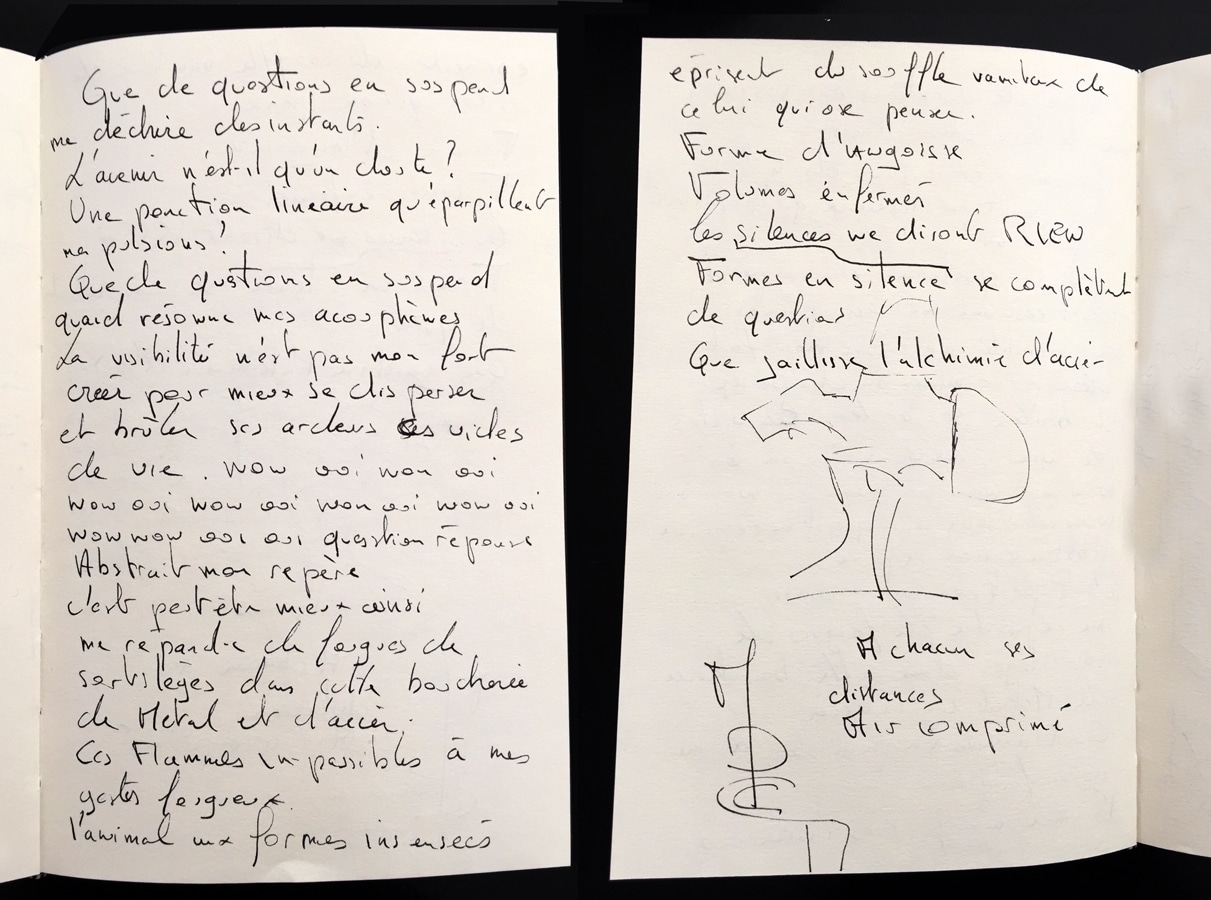 Que de questions en suspend
me déchire des instants.
L'avenir n'est-il qu'un doute ?
Une ponction linéaire qu'éparpillent
ma pulsions !
Que de questions en suspend
quand résonne mes acouphènes
La visibilité n'est pas mon fort
créer pour mieux se disperser
et brûler ses ardeurs vides
de vie. NON oui non oui
NON oui NON oui NON oui NON oui
NON NON oui oui question réponse
Abstrait mon repère
c'est peut être mieux ainsi
me répand-e de fougues de
sortilèges dans cette boucherie
de Métal et d'acier.
Ces Flammes impassibles à mes
gestes fougueux.
l'animal aux formes insensées
éprisent du souffle vaniteux de
celui qui ose penser.
Forme d'Angoisse
Volumes enfermés
les silences ne diront RIEN
Formes en silence se complètent
de questions
Que jaillisse l'alchimie d'acier
A chacun ses
distances
Air comprimé